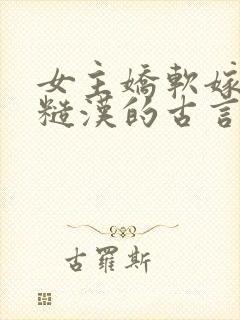 女主嬌軟嫁
糙漢的古言
古羅斯